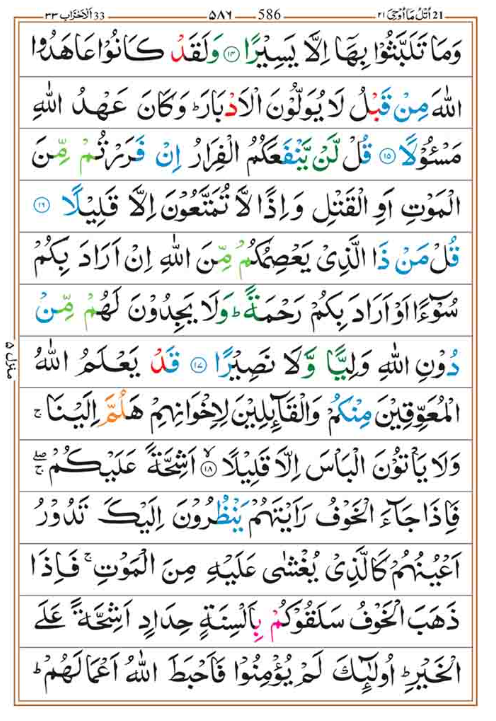 21 اُتْلُ مَا اُوْحِیَ ٢١ 586 ٥٨٦ 33 اَلْاَحْزَاب ٣٣
وَمَا تَلَبَّثُوْا بِهَاۤ اِلَّا يَسِيْرًا ﴿۱۴﴾ وَلَقَدْ كَانُوْا عَاهَدُوا
اللّٰهَ مِنْ قَبْلُ لَا يُوَلُّوْنَ الْاَدْبَارَ ؕ وَكَانَ عَهْدُ اللّٰهِ
مَسْـُٔوْلًا ﴿۱۵﴾ قُلْ لَّنْ يَّنْفَعَكُمُ الْفِرَارُ اِنْ فَرَرْتُمْ مِّنَ
الْمَوْتِ اَوِ الْقَتْلِ وَاِذًا لَّا تُمَتَّعُوْنَ اِلَّا قَلِيْلًا ﴿۱۶﴾
قُلْ مَنْ ذَا الَّذِيْ يَعْصِمُكُمْ مِّنَ اللّٰهِ اِنْ اَرَادَ بِكُمْ
سُوْٓءًا اَوْ اَرَادَ بِكُمْ رَحْمَةً ؕ وَلَا يَجِدُوْنَ لَهُمْ مِّنْ
دُوْنِ اللّٰهِ وَلِيًّا وَّلَا نَصِيْرًا ﴿۱۷﴾ قَدْ يَعْلَمُ اللّٰهُ
الْمُعَوِّقِيْنَ مِنْكُمْ وَالْقَآئِلِيْنَ لِاِخْوَانِهِمْ هَلُمَّ اِلَيْنَا ۚ
وَلَا يَاْتُوْنَ الْبَاْسَ اِلَّا قَلِيْلًا ﴿۱۸﴾ ۙ اَشِحَّةً عَلَيْكُمْ ۖۚ
فَاِذَا جَآءَ الْخَوْفُ رَاَيْتَهُمْ يَنْظُرُوْنَ اِلَيْكَ تَدُوْرُ
اَعْيُنُهُمْ كَالَّذِيْ يُغْشٰى عَلَيْهِ مِنَ الْمَوْتِ ۚ فَاِذَا
ذَهَبَ الْخَوْفُ سَلَقُوْكُمْ بِاَلْسِنَةٍ حِدَادٍ اَشِحَّةً عَلَى
الْخَيْرِ ؕ اُولٰٓئِكَ لَمْ يُؤْمِنُوْا فَاَحْبَطَ اللّٰهُ اَعْمَالَهُمْ ؕ
منزل ٥